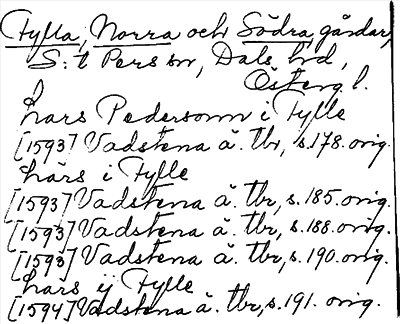 Fylla, Norra och Södra, gårdar,
S:t Pers sn, Dals hd,
Österg. l.
Lars Pedersonn i Fylle
[1593] Vadstena ä. tbr, s.178. orig.
Lars i Fylle
[1593] Vadstena ä. tbr, s.185. orig.
[1593] Vadstena ä. tbr, s.188. orig.
[1593] Vadstena ä. tbr, s.190. orig.
Lars ij Fylle
[1594] Vadstena ä. tbr, s.191. orig.